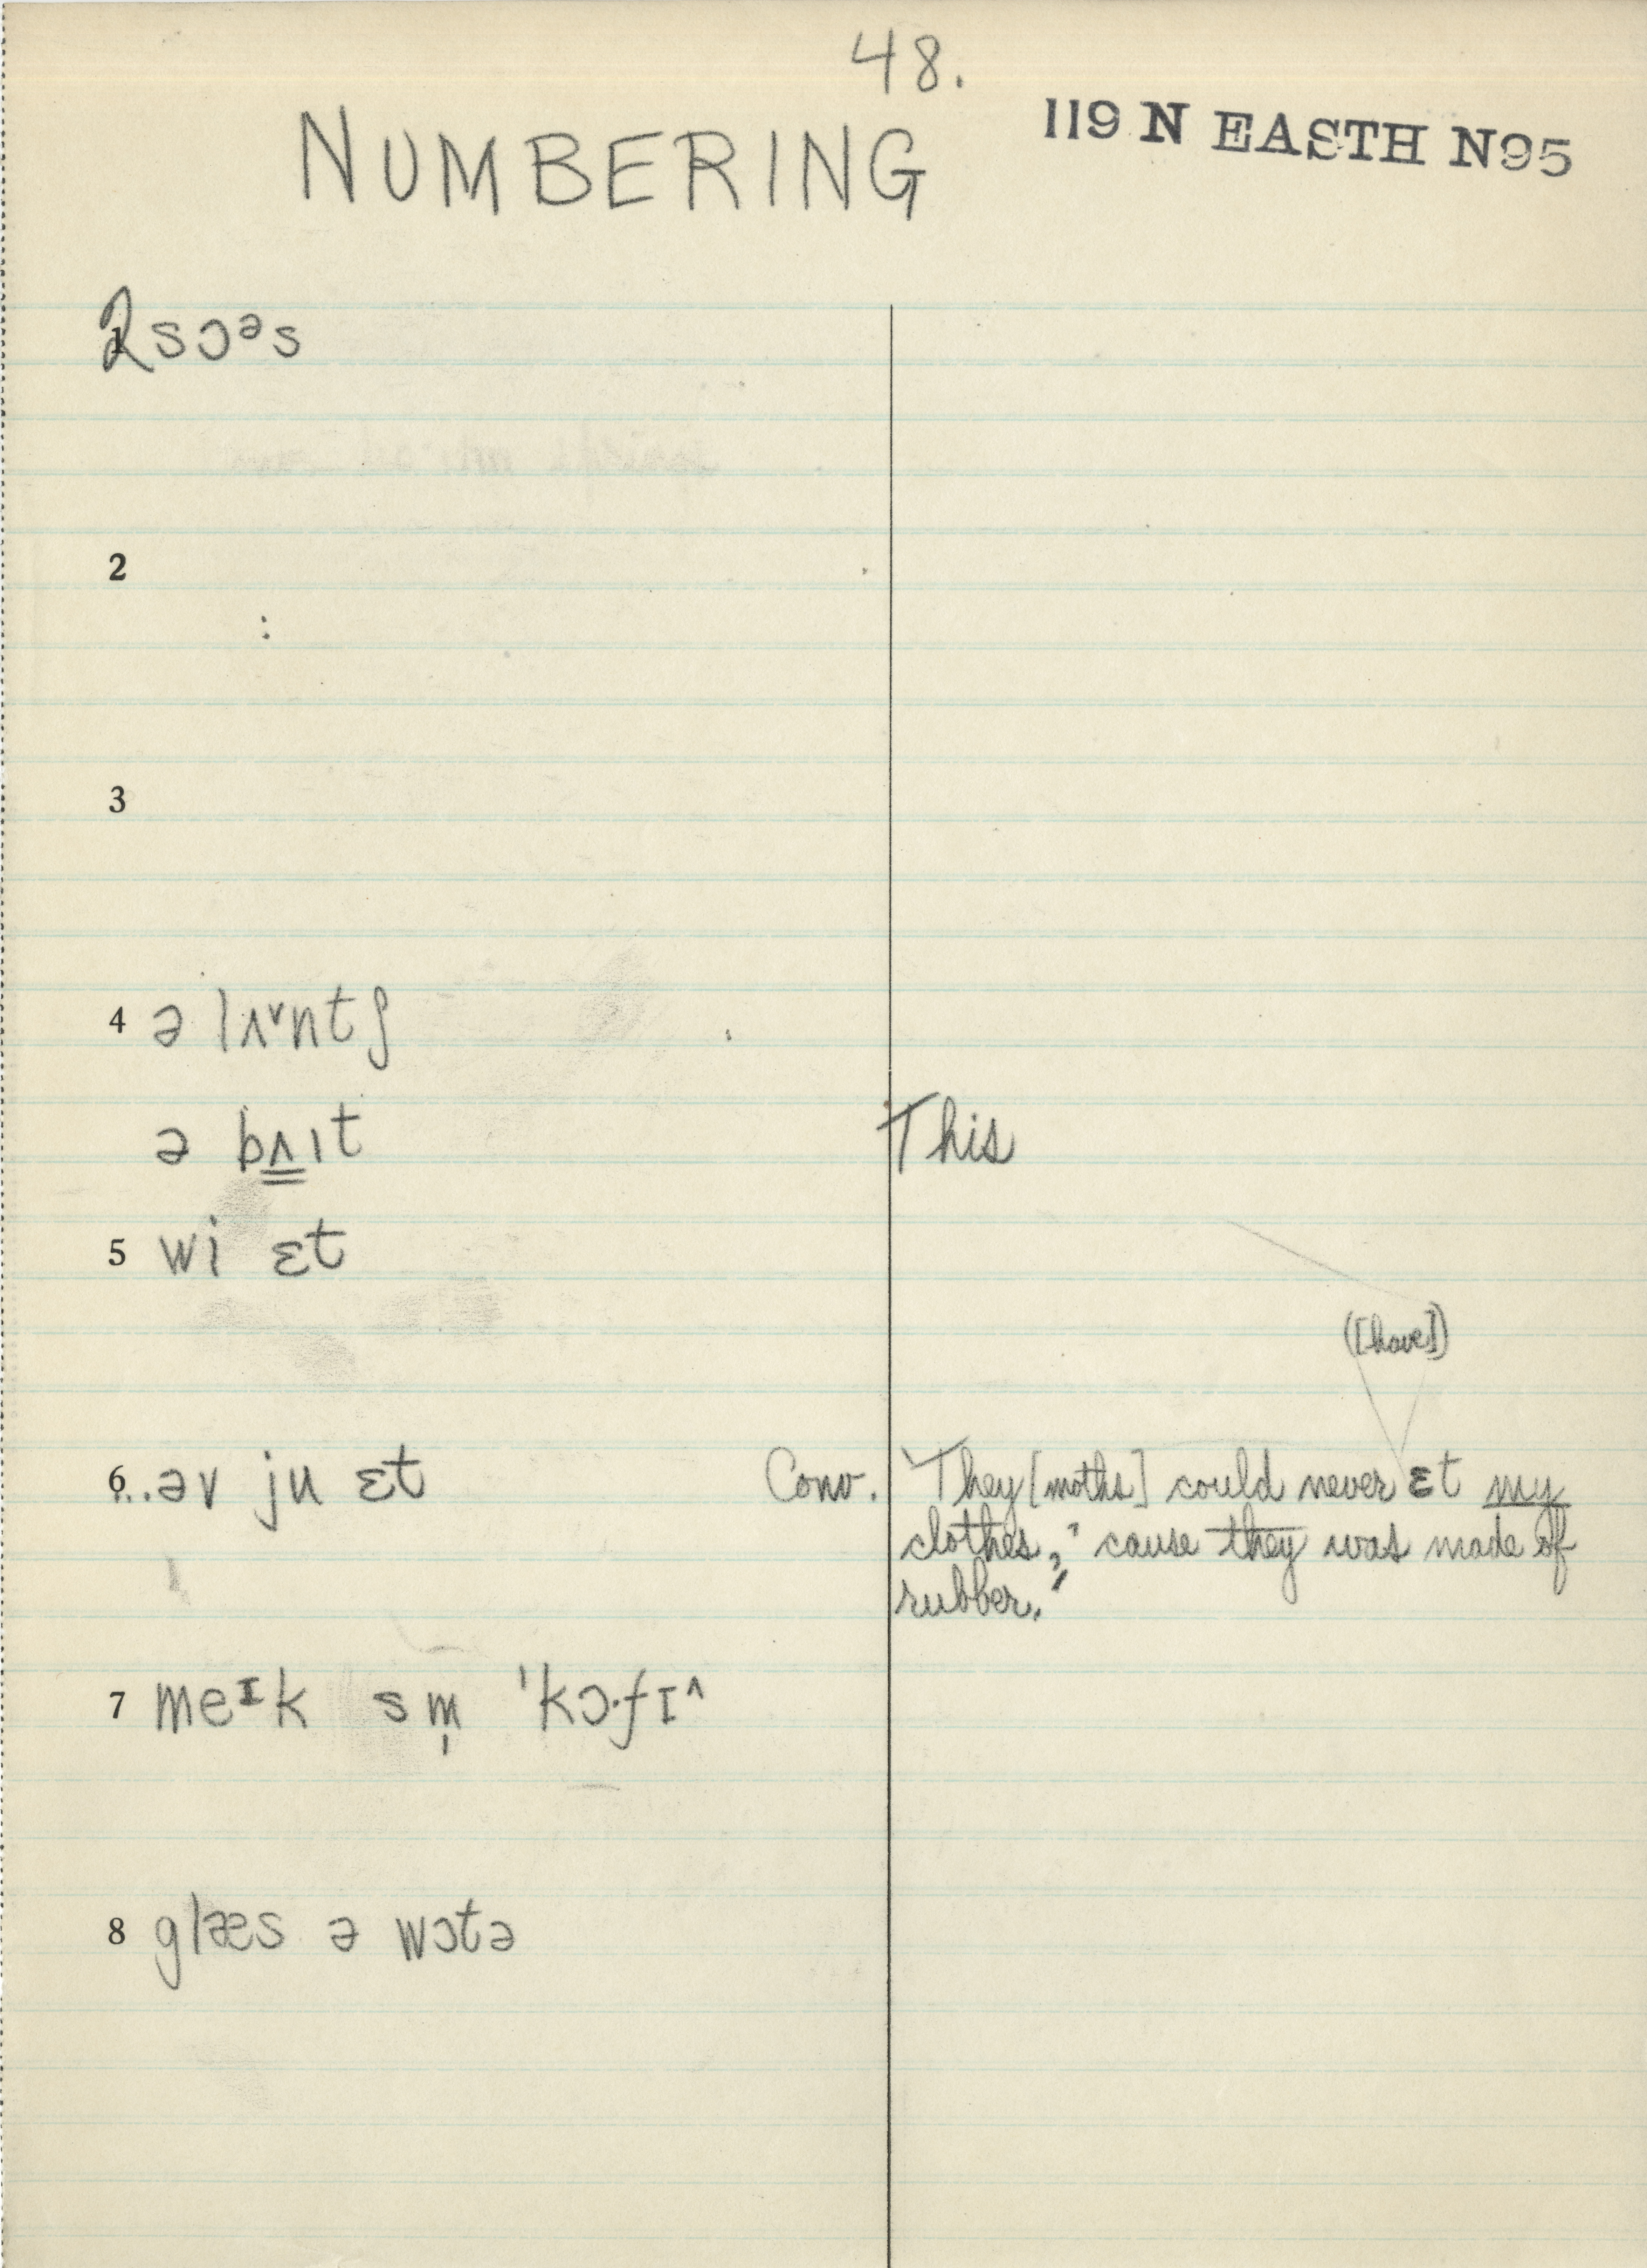 48.
NUMBERING
119 N EASTH N95
1 2 sɔᵊs
2
:
3
4 ə lʌ˅ntʃ
ə bʌ̳ıt This
5 wi ɛt
([have])
6 ...əv ju ɛt Conv. "They [moths] could never ɛt my
clothes, 'cause they was made of
rubber."
7 meᶦk sm̩ 'kɔ·fɪ^
8 glæs ə wɔtə